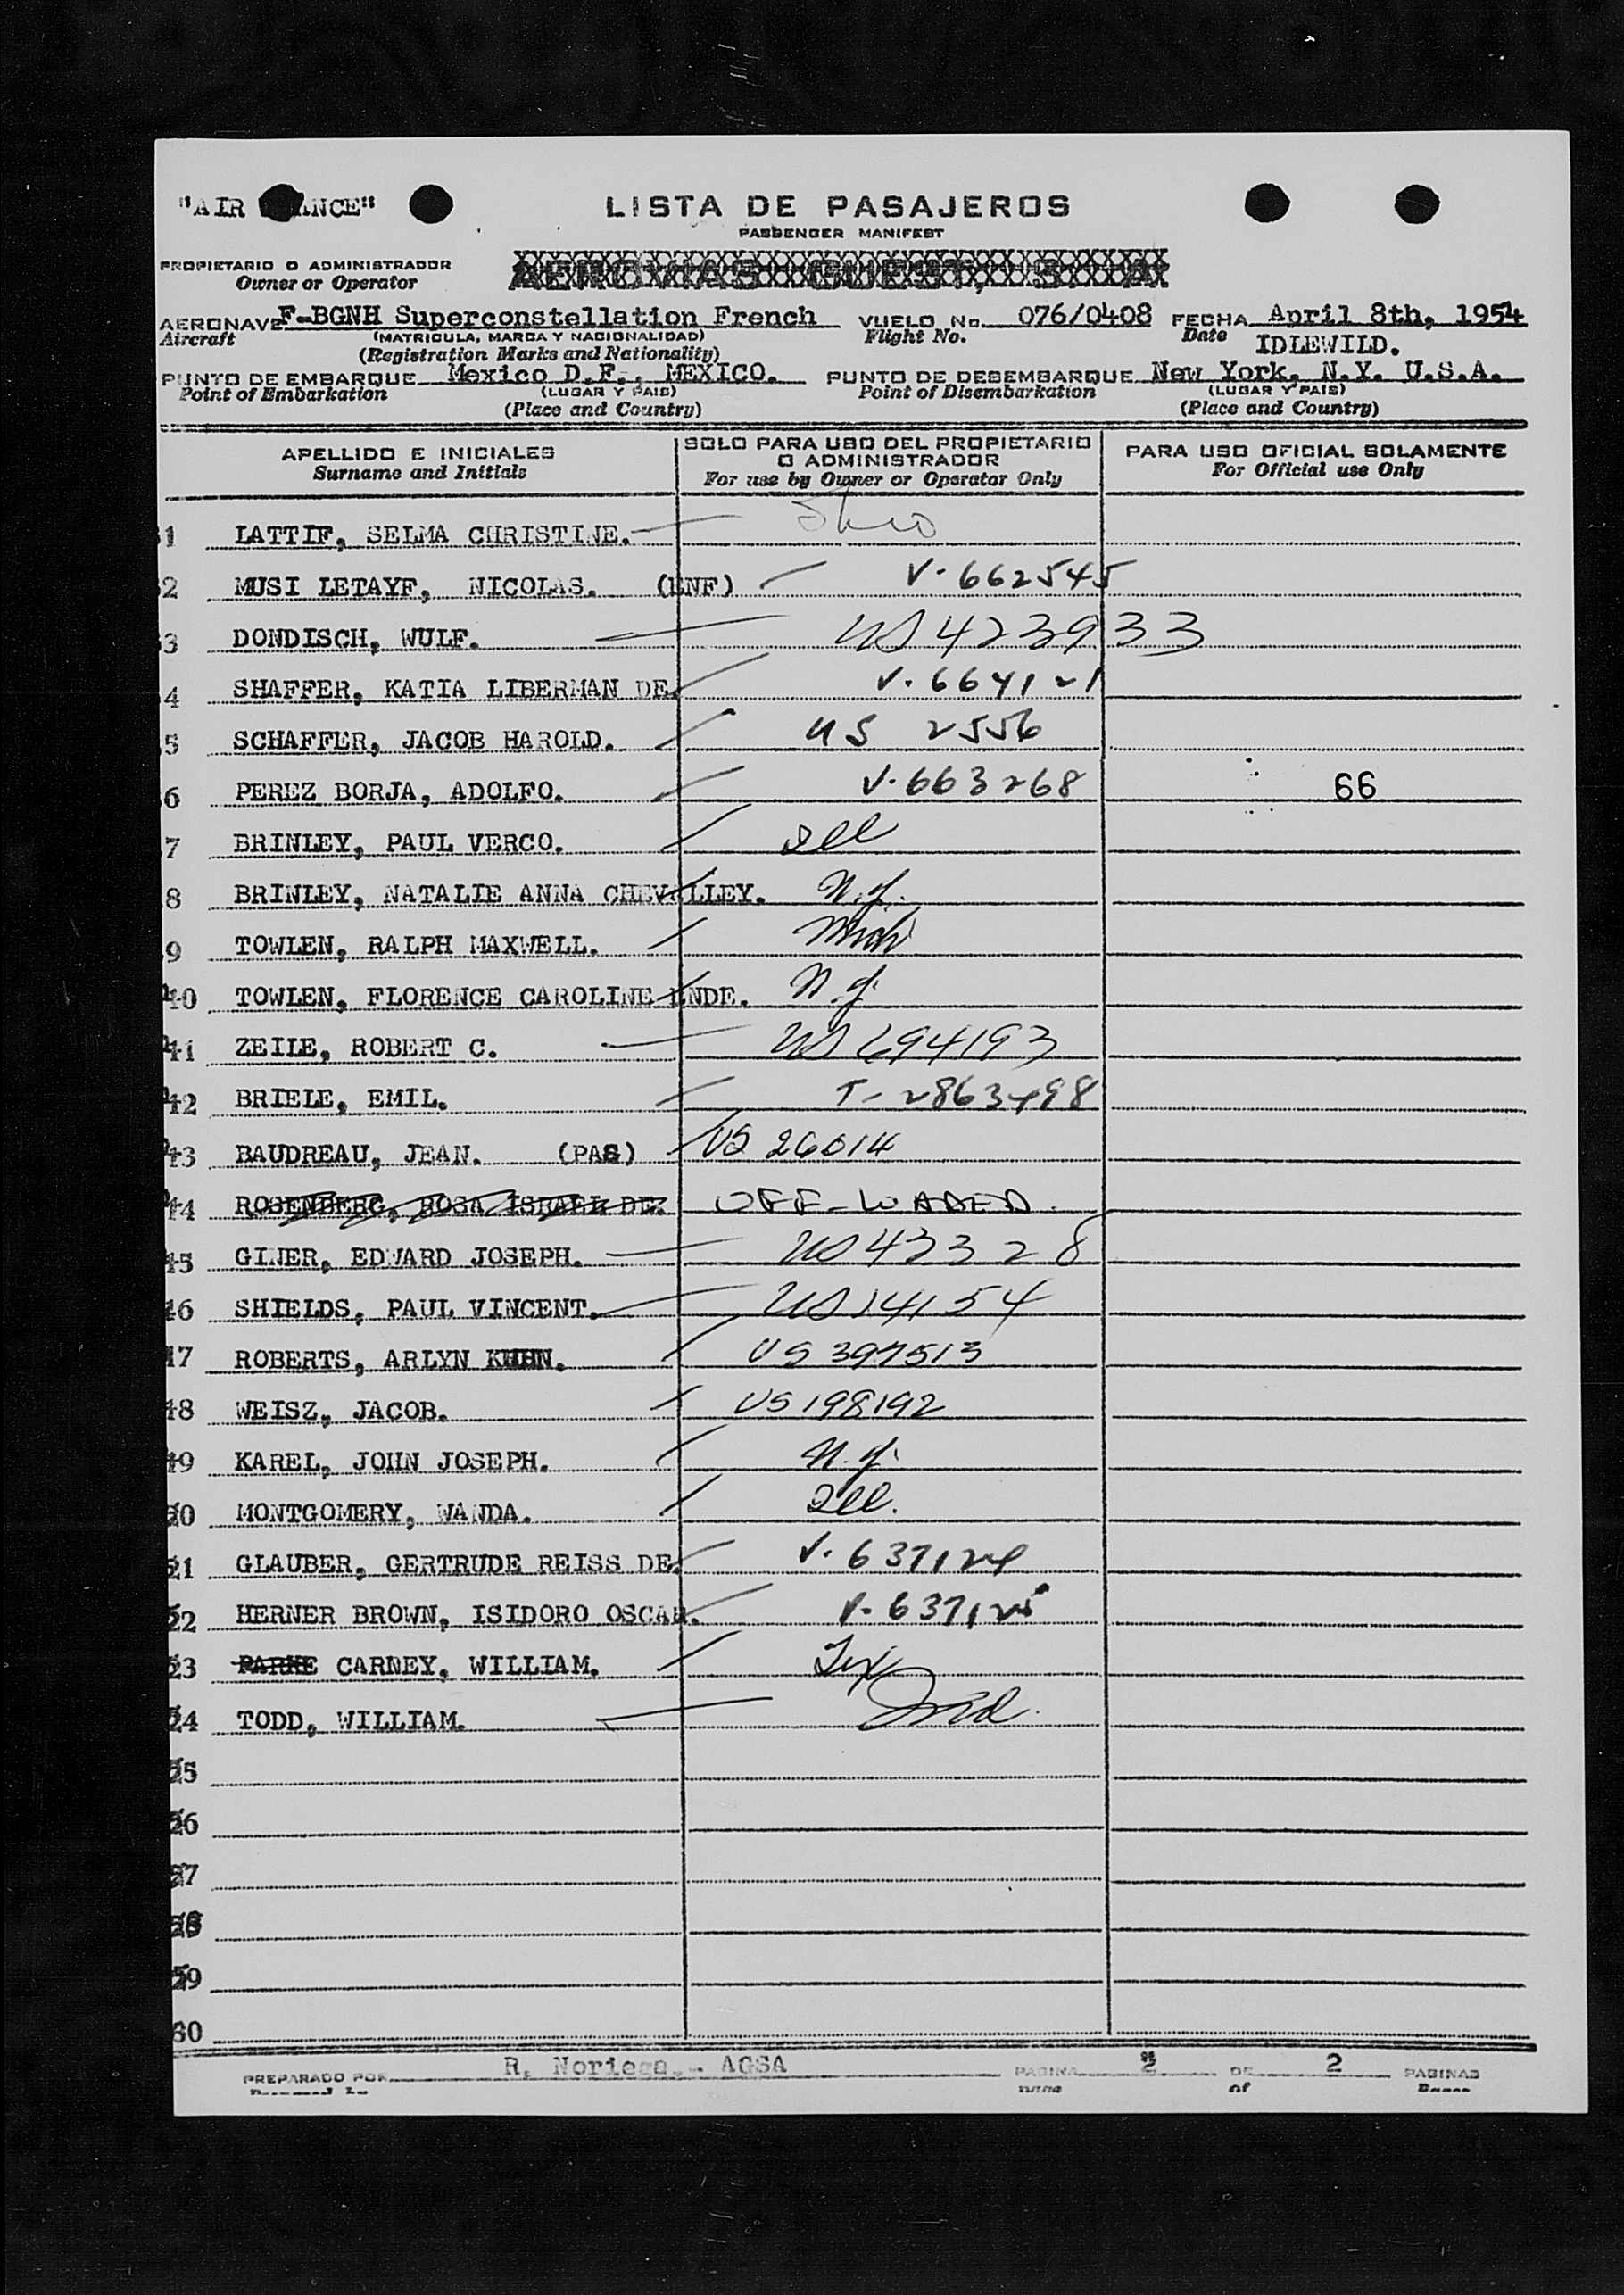 "AIR ANCE" LISTA DE PASAJEROS
PASSENGER MANIFEST
PROPIETARIO O ADMINISTRADOR
Owner or Operator
AERONAVE F-BGNH Superconstellation French VUELO No. 076/0408 FECHA April 8th, 1954
Aircraft (MATRICULA, MARCA Y NACIONALIDAD) Flight No. Date IDLEWILD.
(Registration Marks and Nationality)
PUNTO DE EMBARQUE Mexico D.F., MEXICO. PUNTO DE DESEMBARQUE New York, N.Y. U.S.A.
Point of Embarkation (LUGAR Y PAIS) Point of Disembarkation (LUGAR Y PAIS)
(Place and Country) (Place and Country)
APELLIDO E INICIALES SOLO PARA USO DEL PROPIETARIO PARA USO OFICIAL SOLAMENTE
Surname and Initials O ADMINISTRADOR For Official use Only
For use by Owner or Operator Only
1 LATTIF, SELMA CHRISTINE.
2 MUSI LETAYF, NICOLAS. (ENF) V-662545
3 DONDISCH, WULF. US 423933
4 SHAFFER, KATIA LIBERMAN DE. V-664121
5 SCHAFFER, JACOB HAROLD. US 2556
6 PEREZ BORJA, ADOLFO. V-663268 66
7 BRINLEY, PAUL VERCO. Ill
8 BRINLEY, NATALIE ANNA CHEVALLEY. N.J.
9 TOWLEN, RALPH MAXWELL. Mich
40 TOWLEN, FLORENCE CAROLINE ENDE. N.J.
41 ZEILE, ROBERT C. US 694193
42 BRIELE, EMIL. T-2863498
43 BAUDREAU, JEAN. (PAS) US 26014
44 ROSENBERG, ROSA ISRAEL DE. OFF-LOADED.
45 GINER, EDWARD JOSEPH. US 43328
46 SHIELDS, PAUL VINCENT. US 14154
47 ROBERTS, ARLYN US 397513
48 WEISZ, JACOB. US 198192
49 KAREL, JOHN JOSEPH. N.J.
50 MONTGOMERY, WANDA. Ill.
51 GLAUBER, GERTRUDE REISS DE. V-637124
52 HERNER BROWN, ISIDORO OSCAR. V-637125
53 PARKE CARNEY, WILLIAM. Tex
54 TODD, WILLIAM. Ind.
55
56
57
58
59
60
PREPARADO POR R. Noriega.- AGSA PAGINA 2 DE 2 PAGINAS
of